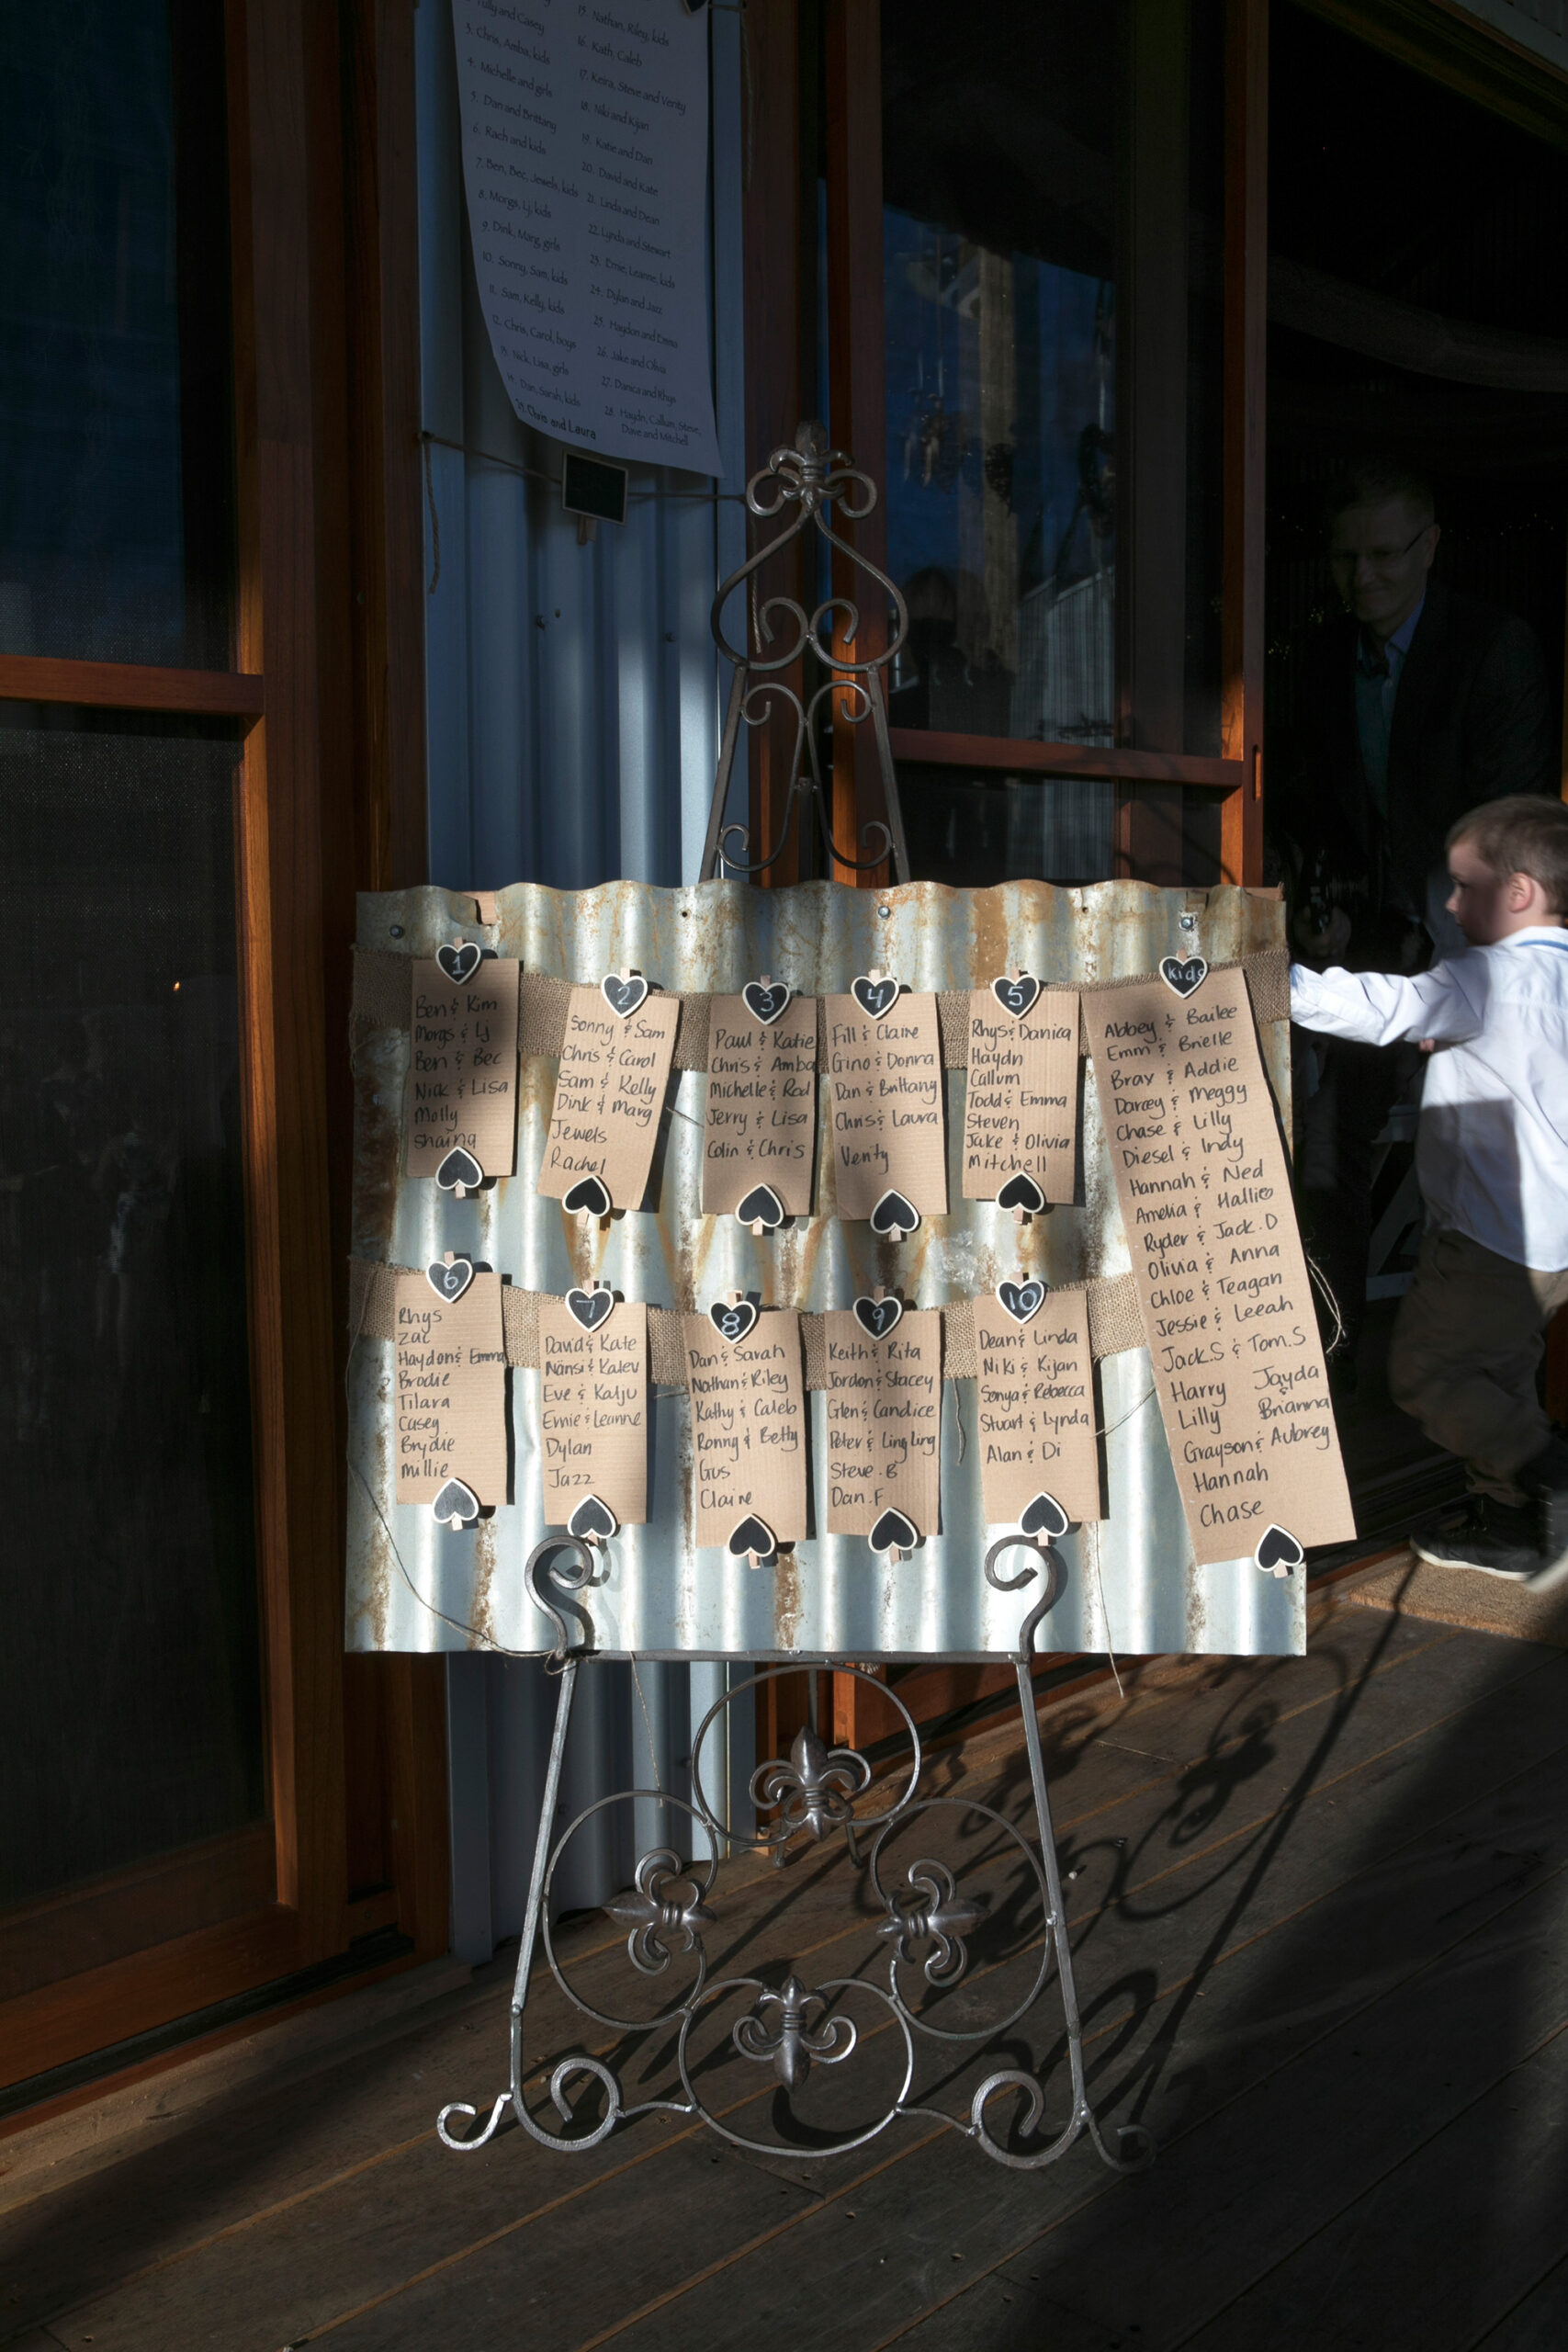 Tully and Casey
3. Chris, Amba, kids
4. Michelle and girls
5. Dan and Brittany
6. Rach and kids
7. Ben, Bec, Jewels, kids
8. Morgs, Lj, kids
9. Dink, Marg, girls
10. Sonny, Sam, kids
11. Sam, Kelly, kids
12. Chris, Carol, boys
13. Nick, Lisa, girls
14. Dan, Sarah, kids
Chris and Laura
15. Nathan, Riley, kids
16. Kath, Caleb
17. Keira, Steve and Verity
18. Niki and Kijan
19. Katie and Dan
20. David and Kate
21. Linda and Dean
22. Lynda and Stewart
23. Ernie, Leanne, kids
24. Dylan and Jazz
25. Haydon and Emma
26. Jake and Olivia
27. Danica and Rhys
28. Haydn, Callum, Steve,
Dave and Mitchell
1
Ben & Kim
Morgs & Lj
Ben & Bec
Nick & Lisa
Molly
Shaina
2
Sonny & Sam
Chris & Carol
Sam & Kelly
Dink & Marg
Jewels
Rachel
3
Paul & Katie
Chris & Amba
Michelle & Rod
Jerry & Lisa
Colin & Chris
4
Fill & Claire
Gino & Donna
Dan & Brittany
Chris & Laura
Verity
5
Rhys & Danica
Haydn
Callum
Todd & Emma
Steven
Jake & Olivia
Mitchell
kids
Abbey & Bailee
Emm & Brielle
Brax & Addie
Darcey & Meggy
Chase & Lilly
Diesel & Indy
Hannah & Ned
Amelia & Hallie
Ryder & Jack.D
Olivia & Anna
Chloe & Teagan
Jessie & Leeah
Jack.S & Tom.S
Harry Jayda
Lilly & Brianna
Grayson & Aubrey
Hannah
Chase
6
Rhys
Zac
Haydon & Emma
Brodie
Tilara
Casey
Brydie
Millie
7
David & Kate
Nansi & Kalev
Eve & Kalju
Ernie & Leanne
Dylan
Jazz
8
Dan & Sarah
Nathan & Riley
Kathy & Caleb
Ronny & Betty
Gus
Claire
9
Keith & Rita
Jordon & Stacey
Glen & Candice
Peter & Ling Ling
Steve.B
Dan.F
10
Dean & Linda
Niki & Kijan
Sonya & Rebecca
Stuart & Lynda
Alan & Di